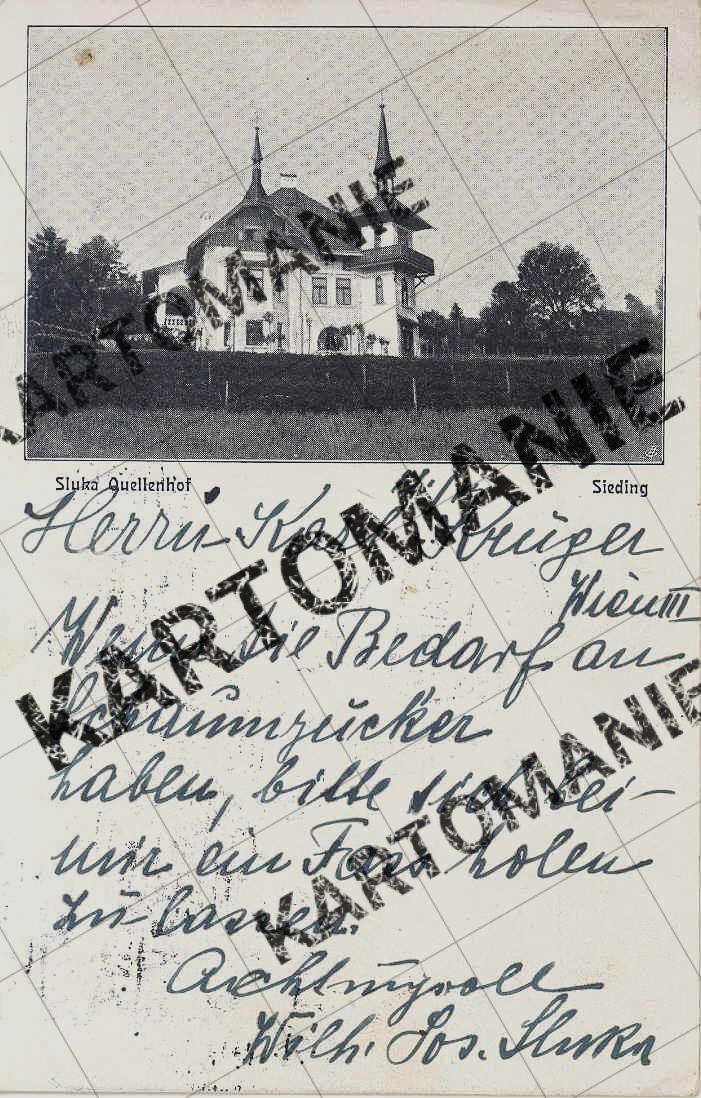 Sluka Quellenhof
Sieding
Herrn Karl Krüger
Wien III
Wenn Sie Bedarf an
Schaumzucker
haben, bitte sich bei
mir ein Fass holen
zu lassen.
Achtungsvoll
Wilh. Jos. Sluka
KARTOMANIE
KARTOMANIE
KARTOMANIE
KARTOMANIE